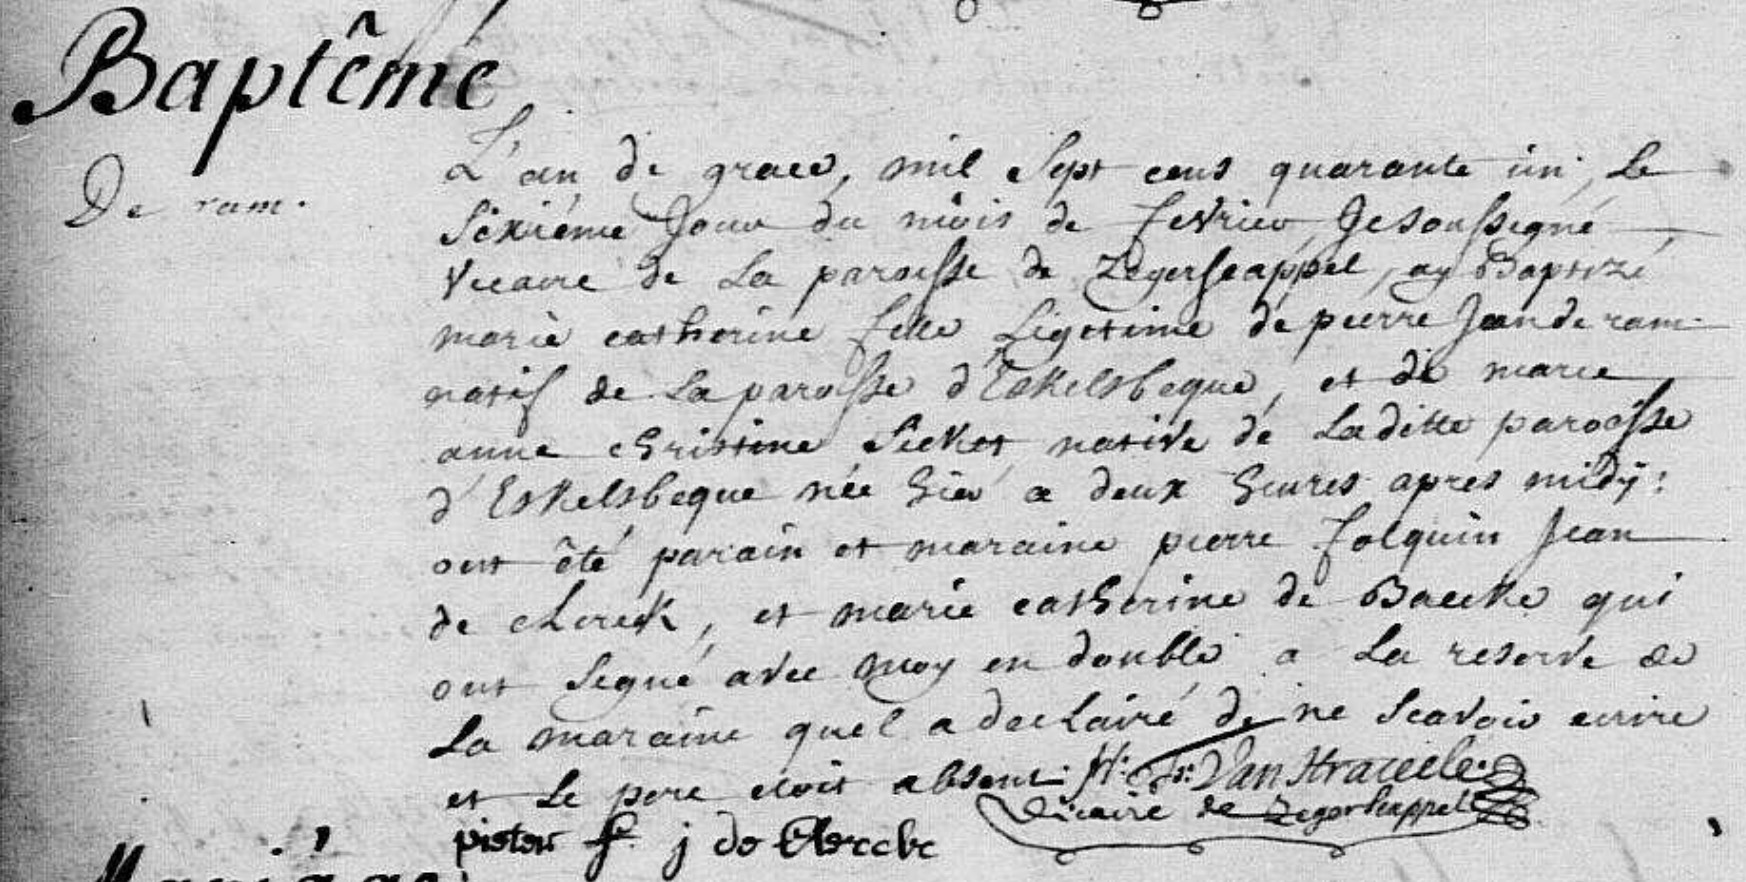 Baptême
De ram.
L'an de grace, mil sept cens quarante un, le
sixiéme Jour du mois de fevrier, Je soussegné
vicaire de la paroisse de Zegerscappel, ay Baptizé
marie catherine fille Legetime de pierre Jean de ram
natif de La paroisse d'Eskelsbeque, et de marie
anne christine native de Laditte paroisse
d'Eskelsbeque née hier a deux heures apres midÿ:
ont êté parain et maraine pierre folquin Jean
de clerck, et marie catherine de Baecke qui
ont segné avec moy en double a La reserve de
La maraine quel a declairé de ne scavoir ecrire
et Le pere etoit absent. Van Straceele
vicaire de Zegerscappel
pieter f j de Clercke